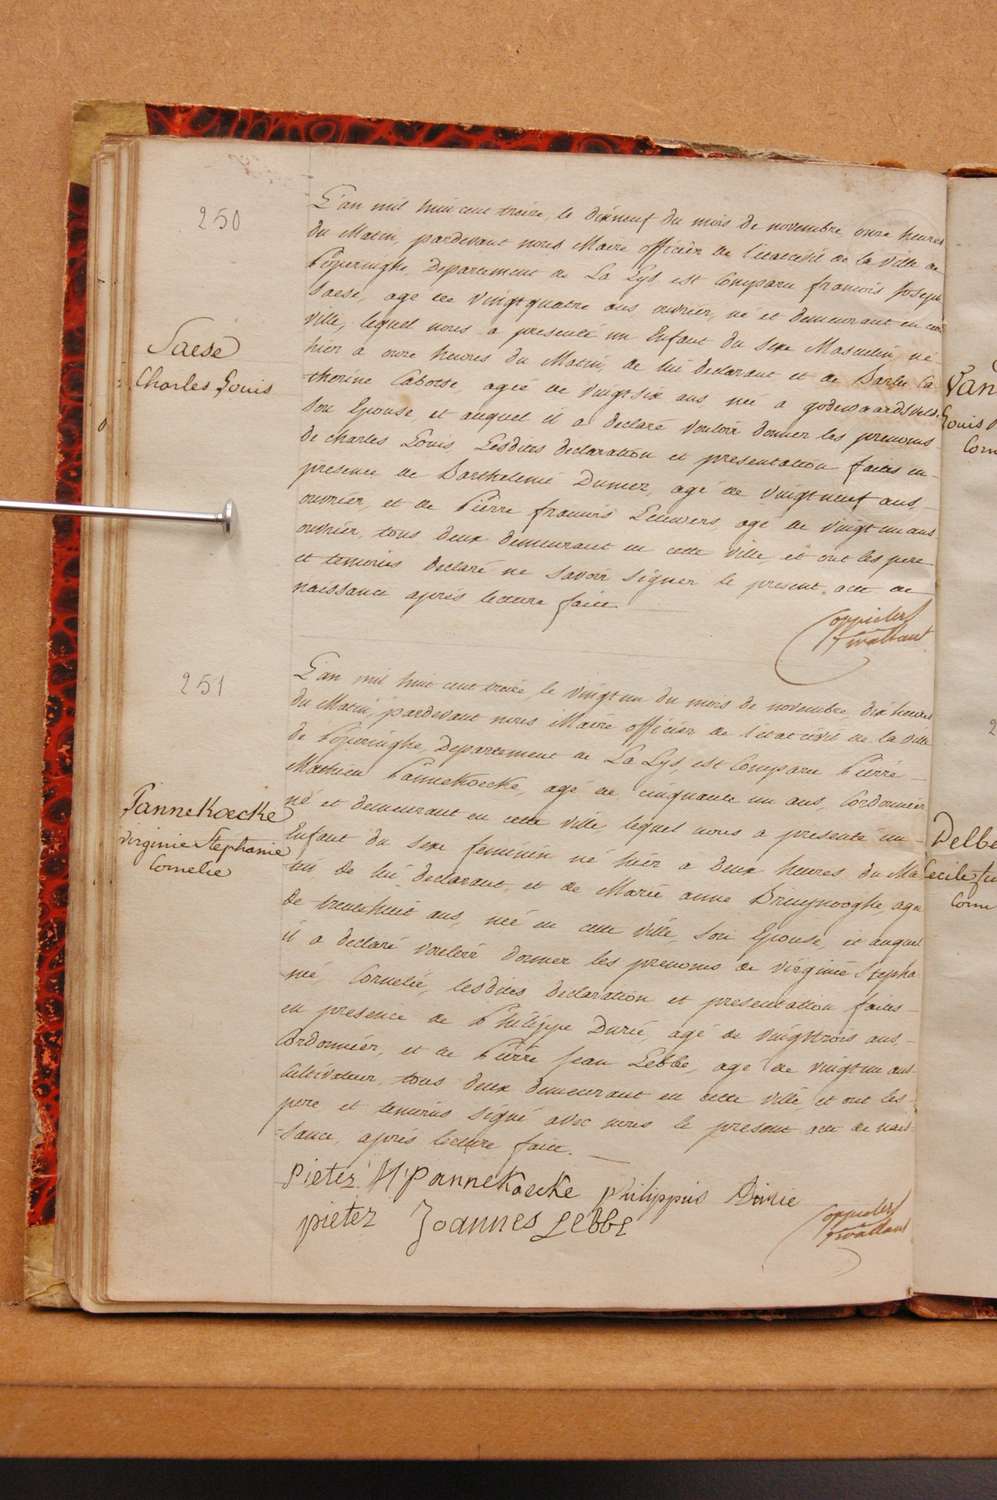 250
L'an mil huit cent treize, le dixneuf du mois de novembre onze heures
du Matin, pardevant nous Maire officier de l'etat civil de la Ville de
Poperinghe Departement de La Lys est Comparu francois Joseph
Saesé, agé de vingt quatre ans ouvrier, né et demeurant en cette
Ville, lequel nous a presenté un Enfant du sexe Masculin, né
hier a onze heures du Matin, de lui declarant et de Barbe Ca
therine Cabotse agée de vingt six ans née a godewaardsvelde
Son Epouse, et auquel il a declaré vouloir donner les prenoms
de Charles Louis, Lesdites declaration et presentation faites en
presence de Barthelemi Dumez, agé de vingt neuf ans,
ouvrier, et de Pierre francois Leuwers, agé de vingt un ans
ouvrier, tous deux demeurant en cette ville, et ont les pere
et temoins declaré ne savoir signer le present acte de
naissance après lecture faite
Saesé
Charles Louis
251
L'an mil huit cent treize, le vingt un du mois de novembre, dix heures
du Matin, pardevant nous Maire officier de l'etat civil de la Ville
de Poperinghe, Departement de La Lys, est Comparu Pierre
Mathieu Pannekoecke, agé de cinquante un ans, Cordonnier
né et demeurant en cette ville, lequel nous a presenté un
Enfant du sexe feminin né hier a deux heures du Ma
tin, de lui declarant, et de Marie anne agée
de trente huit ans, née en cette Ville, son Epouse, et auquel
il a declaré vouloir donner les prenoms de Virginie Stepha
nie, Cornelie, lesdites declaration et presentation faites
en presence de Philippe Durie, agé de vingt trois ans
Cordonnier, et de Pierre Jean Lebbe, agé de vingt un ans
Cultivateur, tous deux demeurant en cette ville, et ont les
pere et temoins signé avec nous le present acte de nais
sance, après lecture faite.
Pannekoecke
Virginie Stephanie
Cornelie
Pieter M Pannekoecke philippus Durie
pieter Joannes Lebbe
Van
Louis
Corn
Delbe
Cecile
Corn